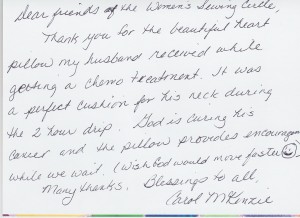 Dear friends of the Women's Sewing Circle,
Thank you for the beautiful heart
pillow my husband received while
getting a chemo treatment. It was
a perfect cushion for his neck during
the 2 hour drip. God is curing his
cancer and the pillow provides encouragement
while we wait. (Wish God would move faster ☺)
Many thanks. Blessings to all,
Carol McKenzie